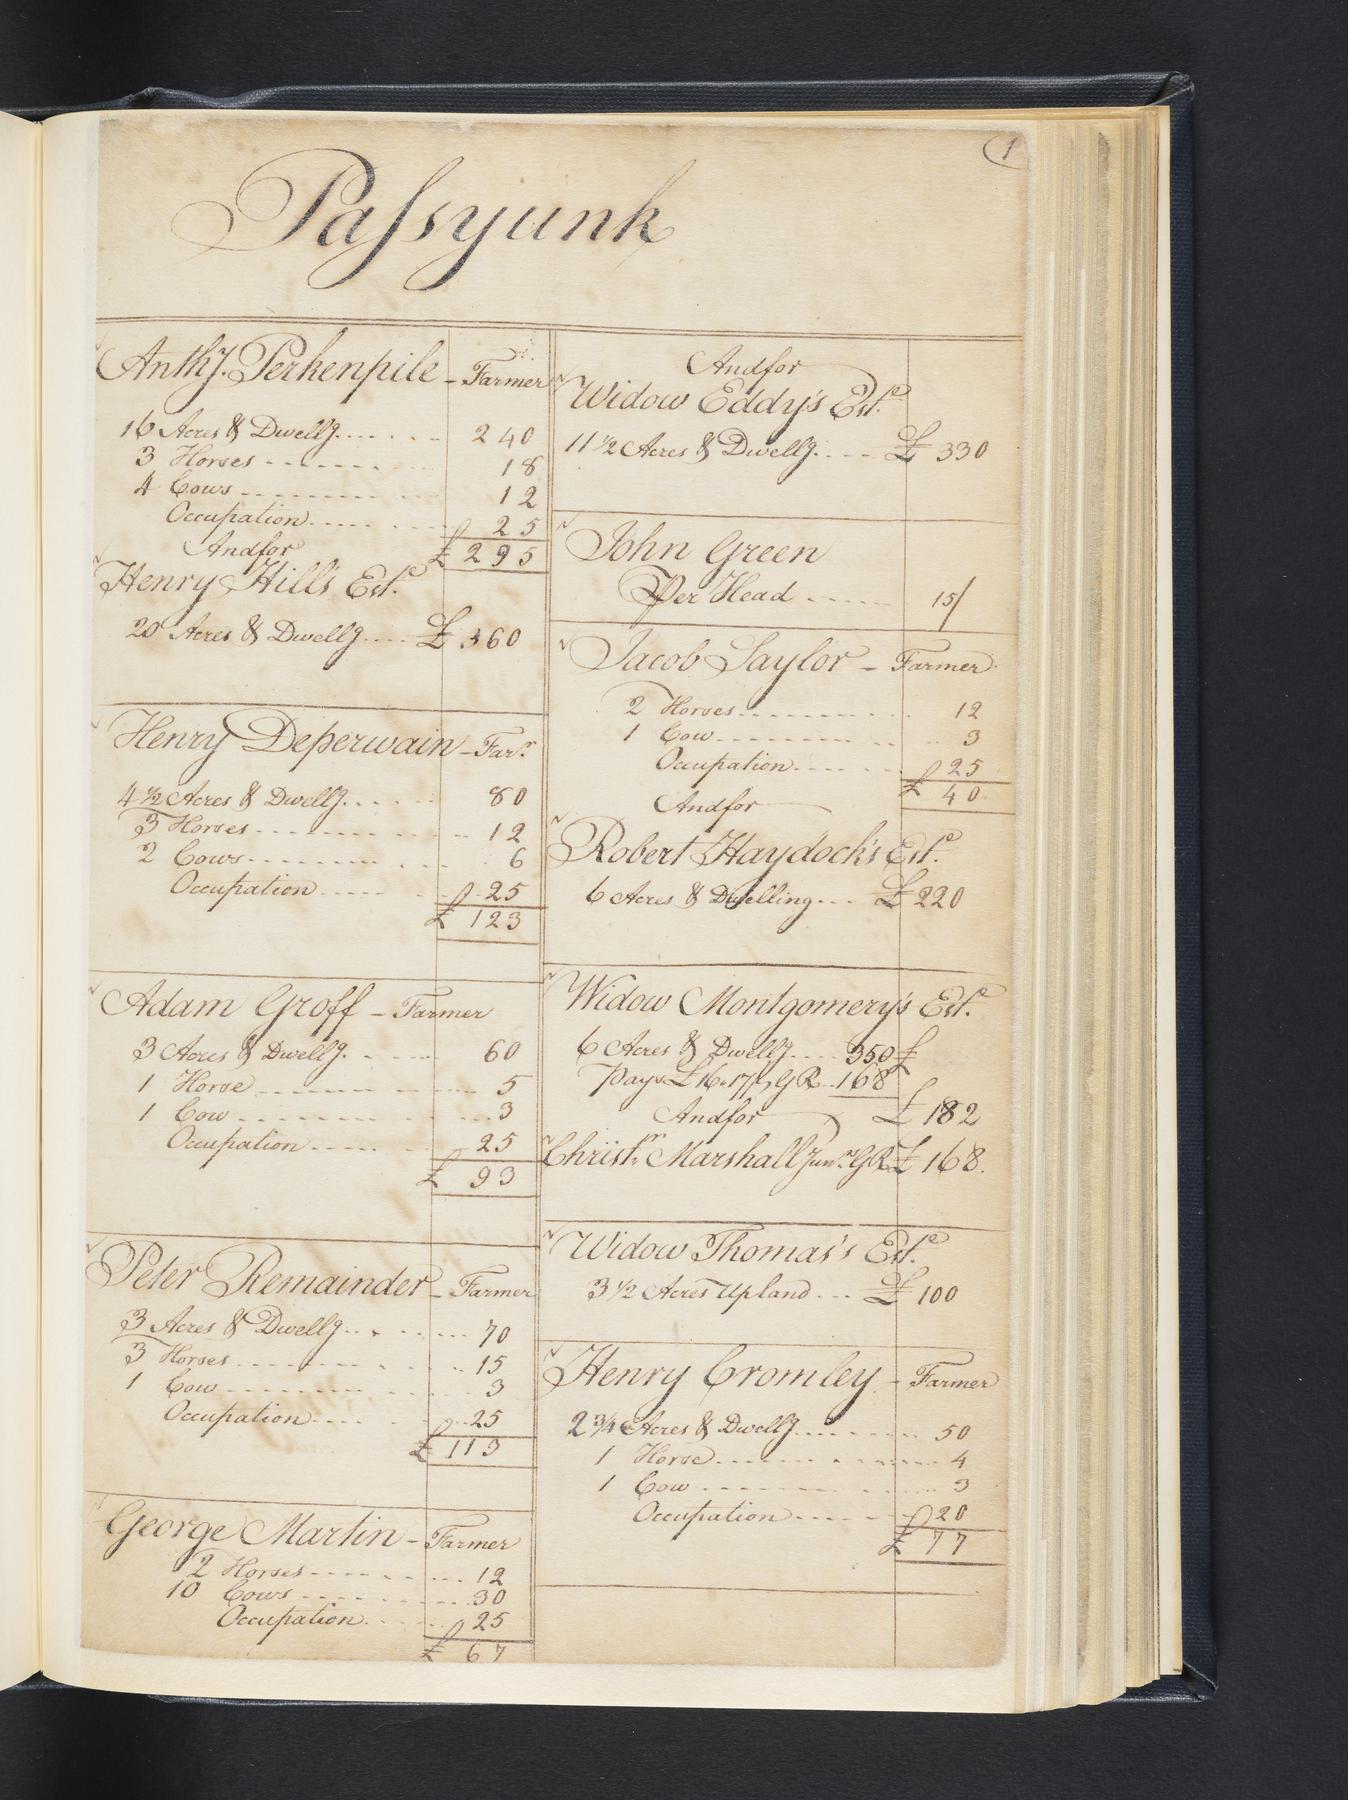 1
Passyunk
Anthy. Perkenpile - Farmer
16 Acres & Dwellg. 240
3 Horses 18
4 Cows 12
Occupation 25
£ 295
Andfor
Henry Hill's Este.
20 Acres & Dwellg. £ 360
Henry Deperwain - Farr.
4 1/2 Acres & Dwellg. 80
3 Horses 12
2 Cows 6
Occupation 25
£ 123
Adam Groff - Farmer
3 Acres & Dwellg. 60
1 Horse 5
1 Cow 3
Occupation 25
£ 93
Peter Remainder - Farmer
3 Acres & Dwellg. 70
3 Horses 15
1 Cow 3
Occupation 25
£ 113
George Martin - Farmer
2 Horses 12
10 Cows 30
Occupation 25
£ 67
Andfor
Widow Eddy's Este.
11 1/2 Acres & Dwellg. £ 330
John Green
Per Head 15/
Jacob Saylor - Farmer
2 Horses 12
1 Cow 3
Occupation 25
£ 40
Andfor
Robert Haydock's Este.
6 Acres & Dwelling £ 220
Widow Montgomery's Este.
6 Acres & Dwellg. 350 £
Pays £ 16.17/ GR 168
Andfor £ 182
Christr. Marshall Junr. GR £ 168.
Widow Thomas's Este.
3 1/2 Acres Upland £ 100
Henry Cromley - Farmer
2 3/4 Acres & Dwellg 50
1 Horse 4
1 Cow 3
Occupation 20
£ 77